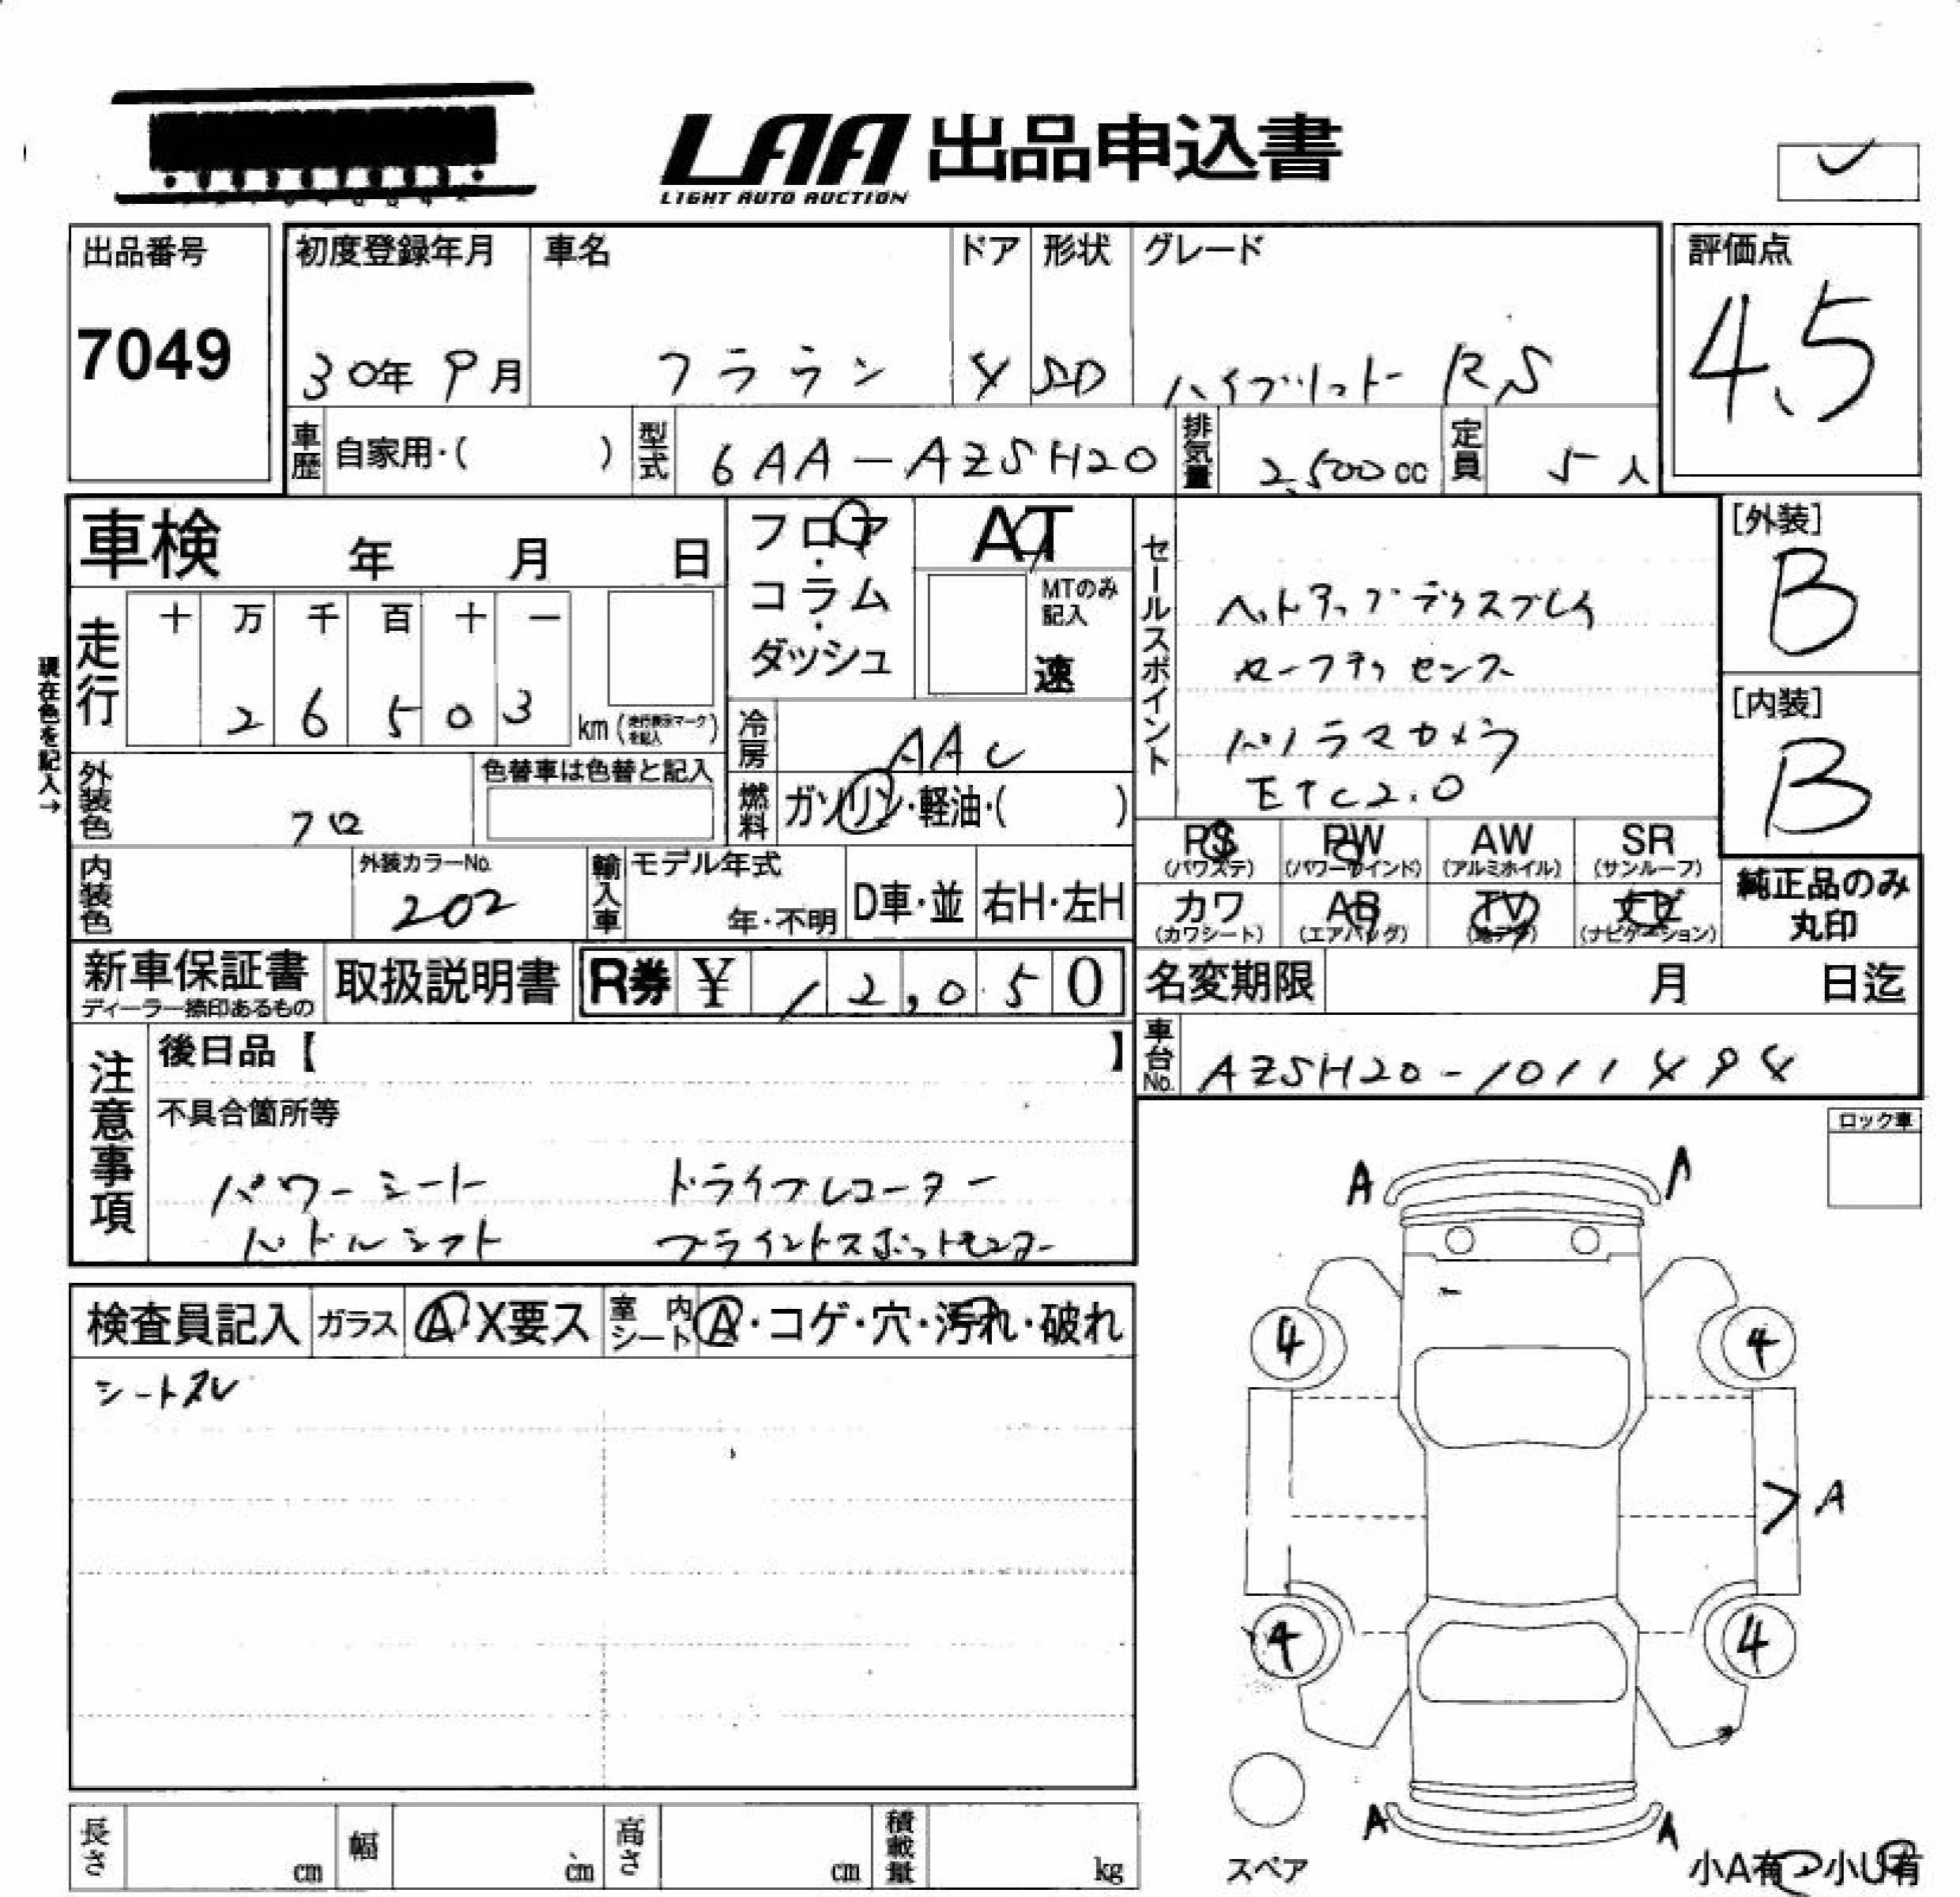 LAA 出品申込書
LIGHT AUTO AUCTION
出品番号
7049
初度登録年月 車名 ドア 形状 グレード
30年 9月 クラウン 4 SD ハイブリット RS
評価点
4.5
車歴 自家用・( ) 型式 6AA-AZSH20 排気量 2,500cc 定員 5人
車検 年 月 日
フロア・コラム・ダッシュ
AT
MTのみ記入
速
セールスポイント
ヘットアップディスプレイ
セーフティセンス
パノラマカメラ
ETC2.0
[外装]
B
[内装]
B
現在色を記入→
走行 十 万 千 百 十 一
2 6 5 0 3 km (走行表示マークを記入)
冷房 AAC
燃料 ガソリン・軽油・( )
外装色 クロ
色替車は色替と記入
内装色
外装カラーNo.
202
輸入車 モデル年式
年・不明 D車・並 右H・左H
PS (パワステ) PW (パワーウインド) AW (アルミホイル) SR (サンルーフ)
カワ (カワシート) AB (エアバッグ) TV (地デジ) ナビ (ナビゲーション)
純正品のみ
丸印
新車保証書
ディーラー捺印あるもの
取扱説明書
R券 ¥ 12,050
名変期限 月 日迄
車台No. AZSH20-1011494
注意事項
後日品【 】
不具合箇所等
パワーシート ドライブレコーター
パドルシフト ブラインドスポットモニター
ロック車
検査員記入 ガラス A・X要ス 室内シート A・コゲ・穴・汚れ・破れ
シートスレ
A A
4 4
A
4 4
A A
スペア
小A有 小U有
長さ cm 幅 cm 高さ cm 積載量 kg